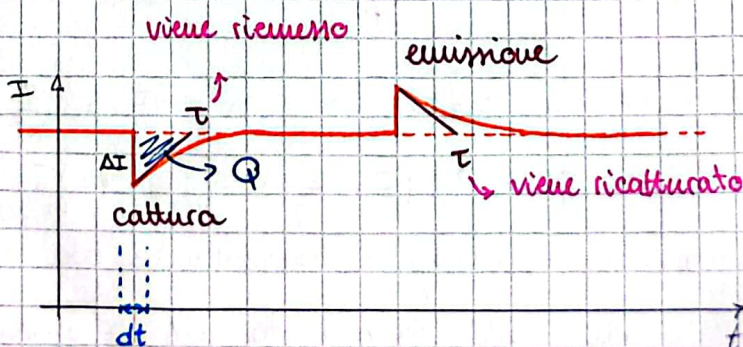 viene riemesso
emissione
I
τ
ΔI
Q
τ
viene ricatturato
cattura
dt
t